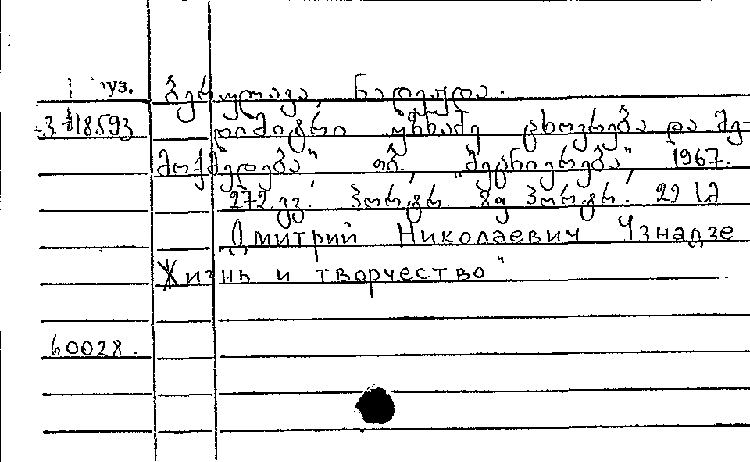 уз. ბერულავა, ნადეჟდა.
318593 დიმიტრი უზნაძე ცხოვრება და შე-
მოქმედება" თბ., „მეცნიერება", 1967.
272 გვ.
Дмитрий Николаевич Узнадзе
Жизнь и творчество"
60028.